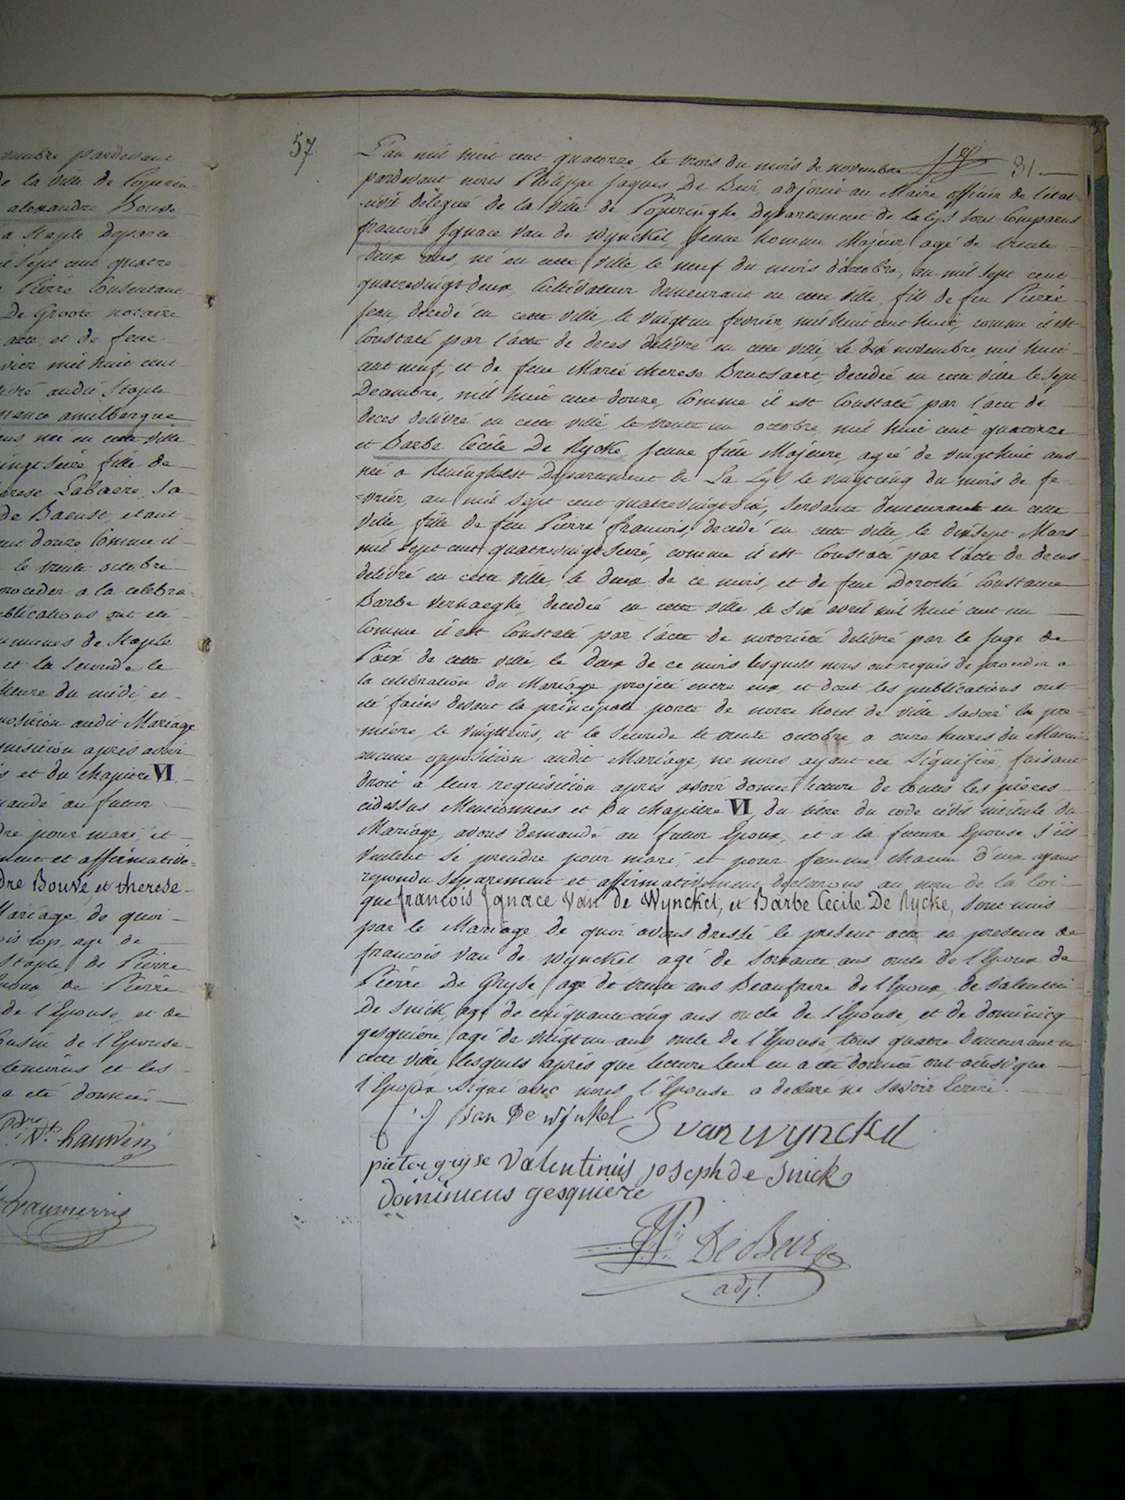 vembre pardevant
de la ville de Poperin-
alexandre Bouve
a Staple, Departe
il sept cent quatre
Pierre Consentant
De Groote notaire
acte et de feue
vrier mil huit cent
livré audit Staple
amelbergue
née en cette ville
fille de
rese Labaere, Sa-
de Baeust, etant
cent douze Comme il
le trente octobre
proceder a la celebra-
publications ont été
communes de Staple
et la Seconde le
heure du midi, et
opposition audit Mariage
quisition après avoir
s et du chapitre VI
mandé au futur
dre pour mari et
ment et affirmative=
dre Bouve et therese-
Mariage de quoi-
age de
Staple, de Pierre
de Pierre
de l'Epouse, et de
Cousin de l'Epouse
temoins et les
a eté donnée
57
L'an mil huit cent quatorze le trois du mois de novembre 31
pardevant nous Philippe Jaques De Beir, adjoint au Maire officier de l'etat
civil délegué de la ville de Poperinghe Departement de la lys Sont Comparus
francois Ignace van de Wynckel, Jeune homme Majeur, agé de trente
deux ans, né en cette ville le neuf du mois d'octobre, an mil Sept cent
quatrevingt deux, Cultivateur demeurant en cette ville, fils de feu Pierre
Jean, decédé en cette ville, le vingt un fevrier mil huit cent huit, comme il est
Constaté par l'acte de deces délivré en cette ville, le dix novembre mil huit
cent neuf, et de feue Marie therese Brutsaert, decedée en cette ville le Sept
Decembre, mil huit cent douze, Comme il est Constaté par l'acte de
deces delivré en cette ville le trente un octobre mil huit cent quatorze
et Barbe Cécile De Rycke, Jeune fille Majeure, agée de vingthuit ans
née a Reninghelst Departement de La Lys, le vingtcinq du mois de fe-
=vrier, an mil Sept cent quatrevingt Six, Servante demeurante en cette
ville, fille de feu Pierre francois, decedé en cette ville, le dixsept Mars
mil Sept cent quatrevingt Seize, comme il est Constaté par l'acte de deces
delivré en cette ville, le deux de ce mois, et de feue Dorothé Constance
Barbe Verhaeghe, decedée en cette ville le Six avril mil huit cent un
Comme il est Constaté par l'acte de notoriété delivré par le Juge de
Paix de cette ville, le deux de ce mois lesquels nous ont requis de proceder a
la celebration du Mariage projeté entre eux et dont les publications ont
eté faites devant la principale porte de notre hotel de ville Savoir la pre-
mière, le vingttrois, et la Seconde le trente octobre, a onze heures du Matin
aucune opposition audit Mariage ne nous ayant eté Signifiée, faisant
droit à leur requisition après avoir donné lecture de toutes les pièces
cidessus Mentionnées et du chapitre VI du titre du code civil intitulé du
Mariage, avons demandé au futur Epoux, et a la future Epouse S'ils
veulent Se prendre pour mari, et pour femme chacun d'eux ayant
repondu Separement et affirmativement declarons au nom de la loi
que francois Ignace Van de Wynckel, et Barbe Cecile De Rycke, Sont unis
par le Mariage, de quoi avons dressé le present acte en presence de
francois Van de Wynckel agé de Soixante ans oncle de l'Epoux de
Pierre De Gryse, agé de trente ans Beaufrere de l'Epoux, de Valentin
De Snick, agé de cinquante cinq ans oncle de l'Epouse, et de dominicq
gesquière, agé de vingt un ans, oncle de l'Epouse, tous quatre demeurant en
cette ville, lesquels après que lecture leur en a eté donnée ont ainsi que
l'Epoux Signé avec nous l'Epouse a declaré ne Savoir Ecrire.
van De wynkel S van wynckel
pieter gryse valentinus joseph de Snick
dominicus gesquiere
De Beir
adjt.